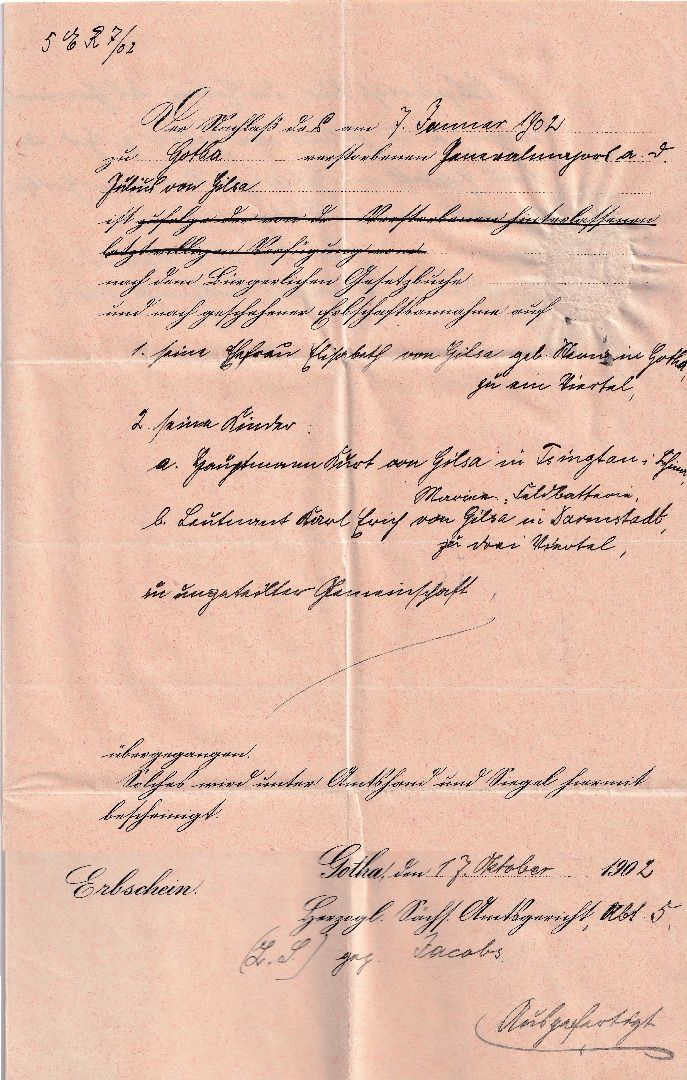 5 E R 7/02
Der Nachlaß des am 7. Januar 1902
zu Gotha verstorbenen Generalmajors a. D.
Julius von Gilsa
ist zufolge der von de Verstorbenen hinterlassenen
letztwilligen Verfügung vom
nach dem Bürgerlichen Gesetzbuche
und nach geschehener Erbschaftsannahme auf
1. seine Ehefrau Elisabeth von Gilsa geb. in Gotha,
zu ein Viertel,
2. seine Kinder:
a. Hauptmann Kurt von Gilsa in Tsingtau i. China,
Marine-Feldbatterie,
b. Leutnant Karl Erich von Gilsa in Darmstadt,
zu drei Viertel,
in ungeteilter Gemeinschaft
übergegangen.
Solches wird unter Amtshand und Siegel hiermit
bescheinigt.
Gotha, den 17. Oktober 1902
Erbschein.
Herzogl. Sächs. Amtsgericht, Abt. 5.
(L. S.) gez. Jacobs.
Ausgefertigt